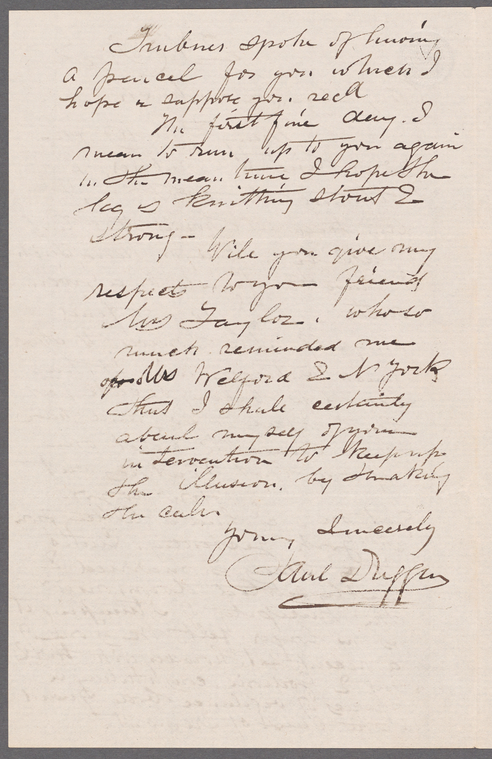 Trubner spoke of having
a parcel for you which I
hope & suppose you recd
The first fine day. I
mean to run up to you again
in the mean time I hope the
leg is knitting stout &
strong—
Will you give my
respects to your friend
Mrs Taylor. who so
much reminded me
of Mrs Welford & N York,
that I shall certainly
avail myself of your
intervention to keep up
the illusion. by making
the call.
Yours Sincerely
Paul Duggan